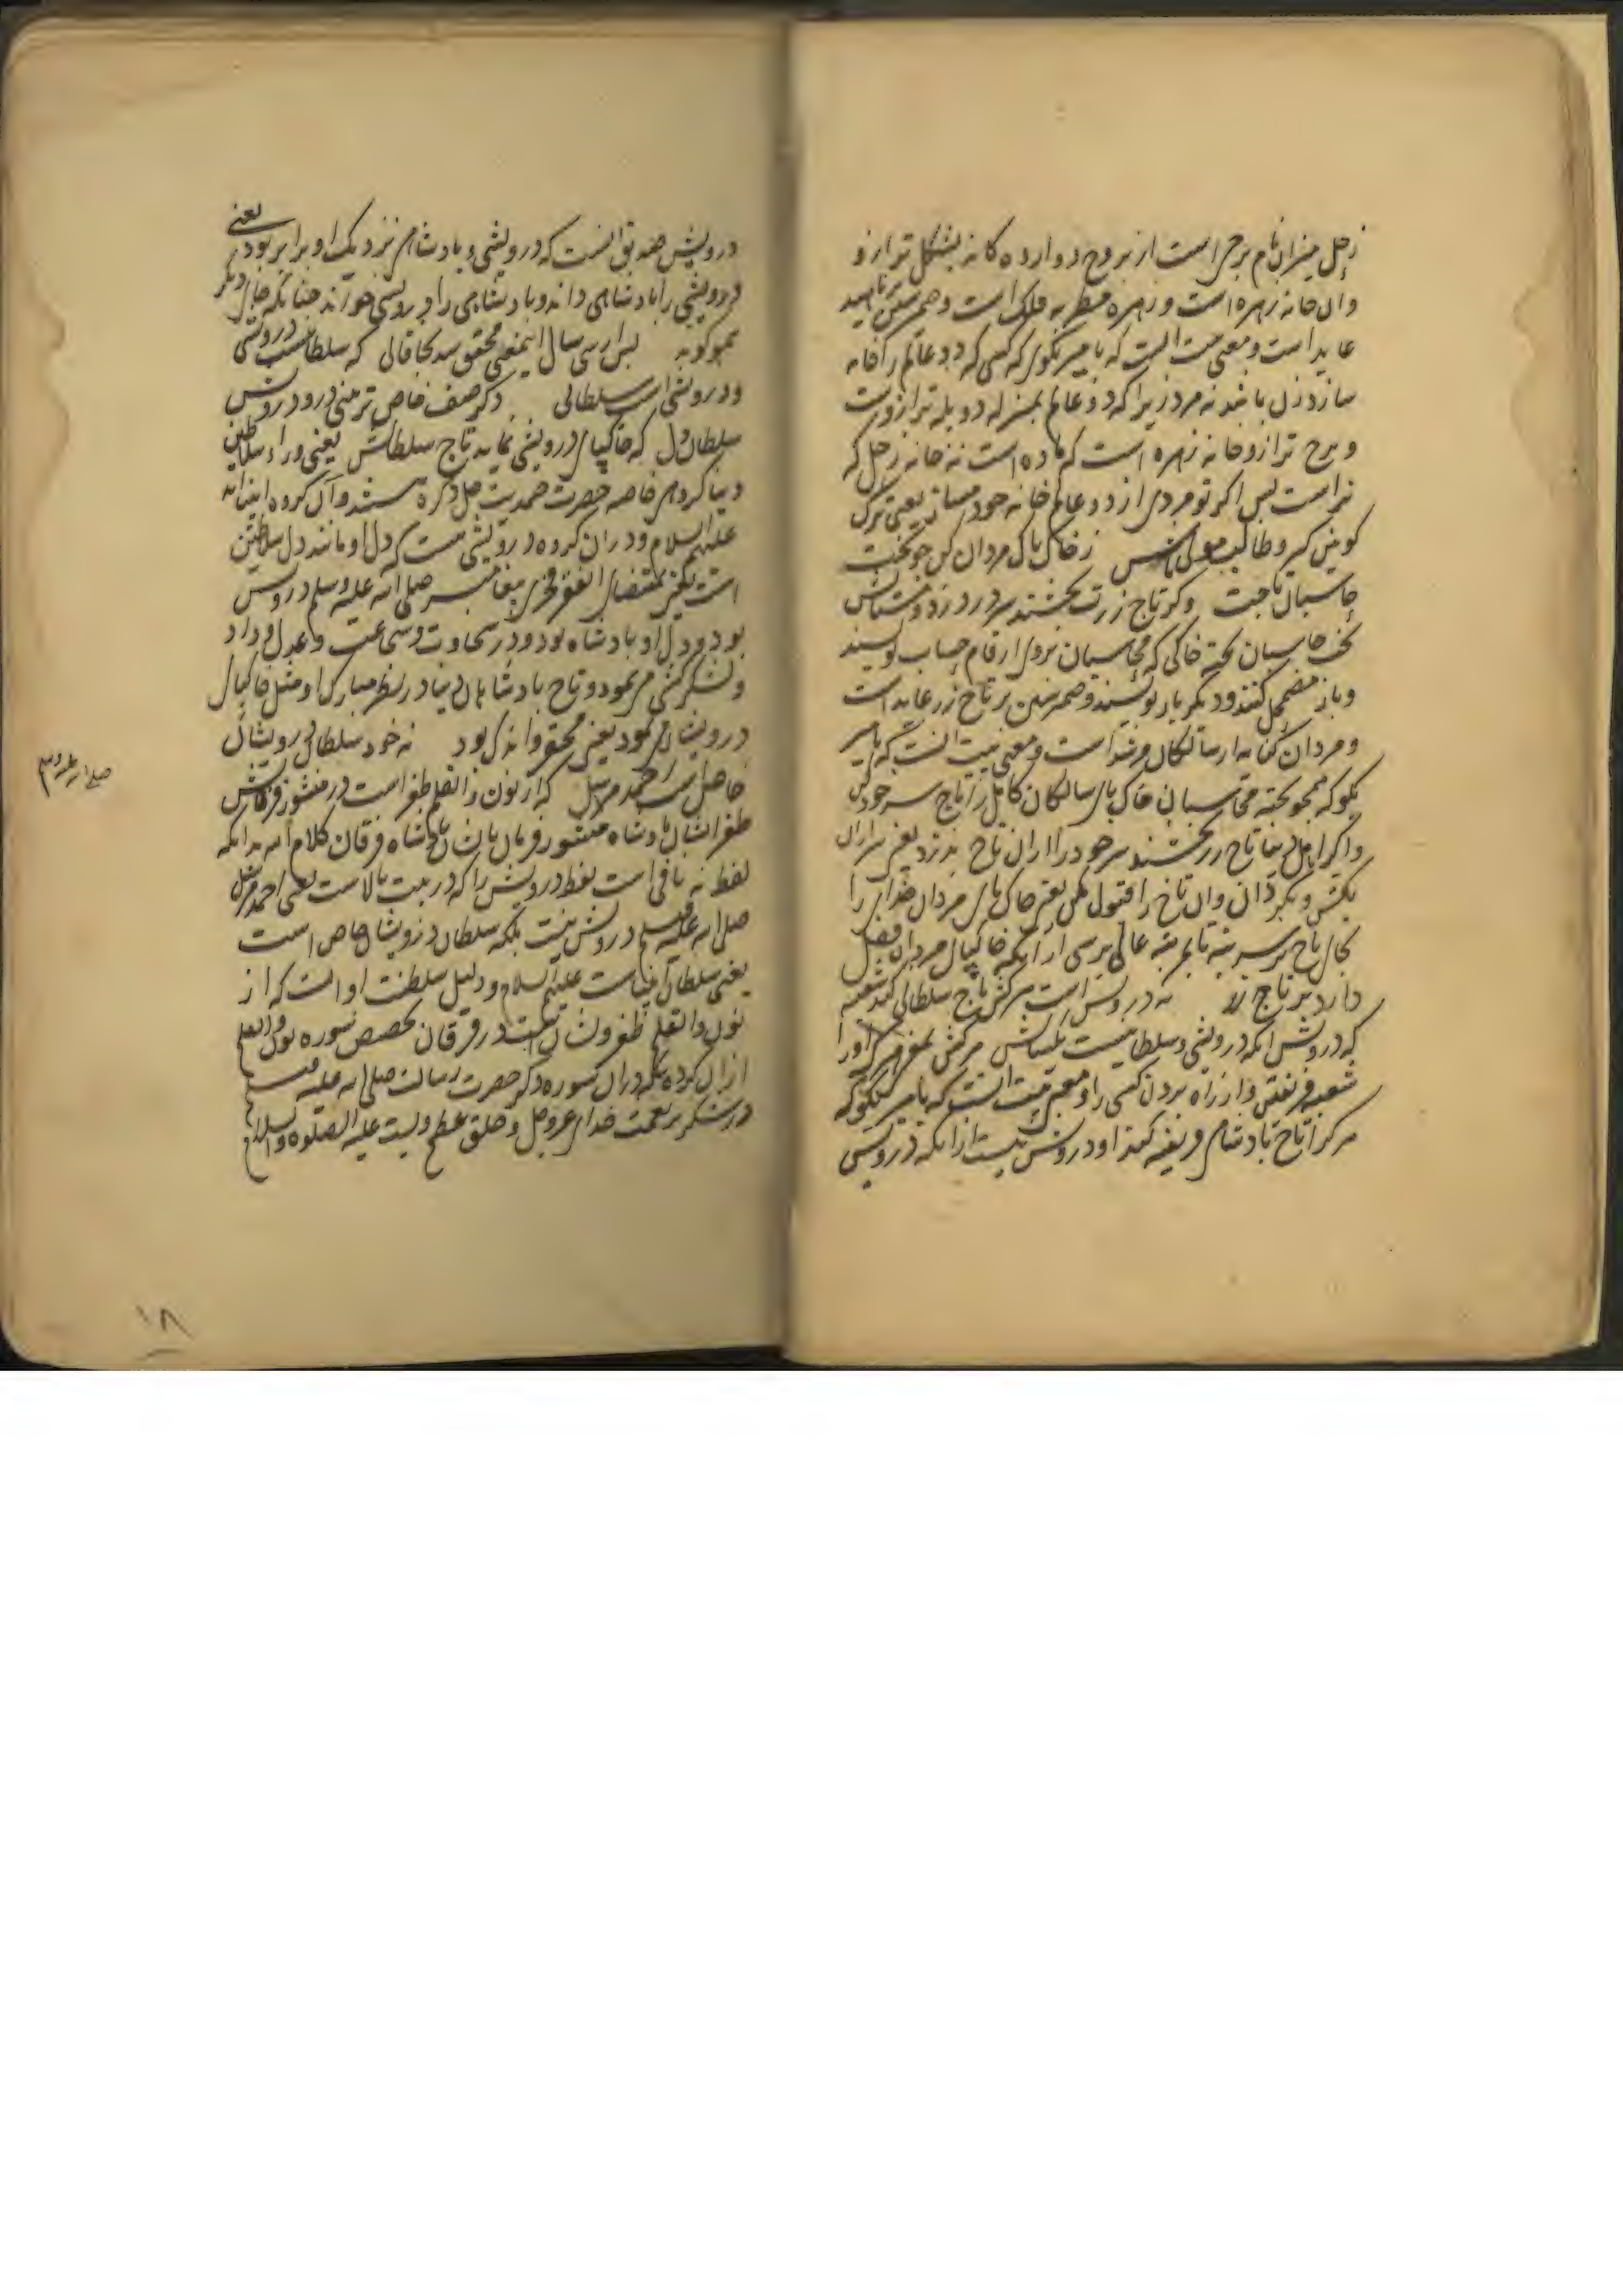 زحل میزان نام برجی است از بروج دوازده کانه بشکل ترازو
وان خانه زهره است و زهره مطربه فلک است و ضمیر بناهید
عاید است و معنی بیت انست که بامیر بکوی که کسی که دو عالم را خانه
سازد زن باشد نه مرد زیرا که دو عالم بمنزله دو پله ترازوست
و برج ترازو خانه زهره است که ماده است نه خانه زحل که
نر است پس اکر تو مردی از دو عالم خانه خود مساز یعنی ترک
کونین کیر و طالب مولی باش ز خاک پاک مردان کن چو تخت
حاسبان تاجت وکر تاج زرت بخشند سر در دزد و مستانش
تخت حاسبان تخته خاکی که محاسبان بروی ارقام حساب نویسند
و باز مضمحل کنند و دیکر بار نویسند و ضمیر شین بر تاج زر عاید است
و مردان کنایه از سالکان مرشد است و معنی بیت انست که بامیر
بکو که همچو تخته محاسبان خاک پای سالکان کامل را تاج سر خود کن
و اکر اهل دنیا تاج زر بخشند سر خود را از ان تاج بدزد یعنی سر ازان
بکش و بکردان وان تاج را قبول مکن یعنی خاک پای مردان خدای را
بجای تاج بر سر بنه تا بمرتبه عالی برسی از آنکه خاک پای مردان فضل
دارد بر تاج زر نه درویش است هر کش تاج سلطانی کند شعبه
که درویش انکه درویشی و سلطانیست یکسانش هر کش بمعنی هر که او را
شعبه فریفتن و از راه بردن کسی را و معنی بیت انست که بامیر بکو که
هر کرا تاج پادشاهی فریفته کند او درویش نیست از آنکه درویش
درویش صفت بقا انست که درویشی و پادشاهی نزدیک او برابر بود یعنی
درویشی را پادشاهی داند و پادشاهی را درویشی خواند چنانکه جای دیکر
میکوید پس از سی سال اینمعنی محقق شد بخاقانی که سلطانیست درویشی
و درویشی است سلطانی دکر صنف خاص تر بینی درو درویش
سلطان دل که خاک پای درویشی نماید تاج سلطانش یعنی وراء سلاطین
دنیا کروهی خاصه حضرت صمدیت جل ذکره هستند و آن کروه انبیااند
علیهم السلام و دران کروه درویشی هست که دل او مانند دل سلاطین
است یعنی بمقتضای الفقر فخری پیغامبر صلی الله علیه وسلم درویش
بود و دل او پادشاه بود و در سخاوت و شجاعت و عدل و داد
و لشکرکشی می نمود و تاج پادشاهان دنیا در نظر مبارک او مثل خاک پای
درویشان می نمود یعنی محقر و اندک بود نه خود سلطان درویشان
خاص است احمد مرسل که از نون والقلم طغراست در منشور فرقانش
طغرا نشان پادشاه منشور فرمان پادشاه فرقان کلام الله بدانکه
لفظ نه نافی است لفظ درویش را که در بیت بالاست یعنی احمد مرسل
صلی الله علیه وسلم درویش نیست بلکه سلطان درویشان خاص است
یعنی سلطان انبیاست علیهم السلام و دلیل سلطنت او انست که از
نون والقلم طغرو نشان است در فرقان تخصیص سوره نون والقلم
ازان کرده که دران سوره ذکر حضرت رسالت صلی الله علیه وسلم
در شکر بر نعمت خدای عزوجل و خلق عظیم ویست علیه الصلوة والسلام
۱۸